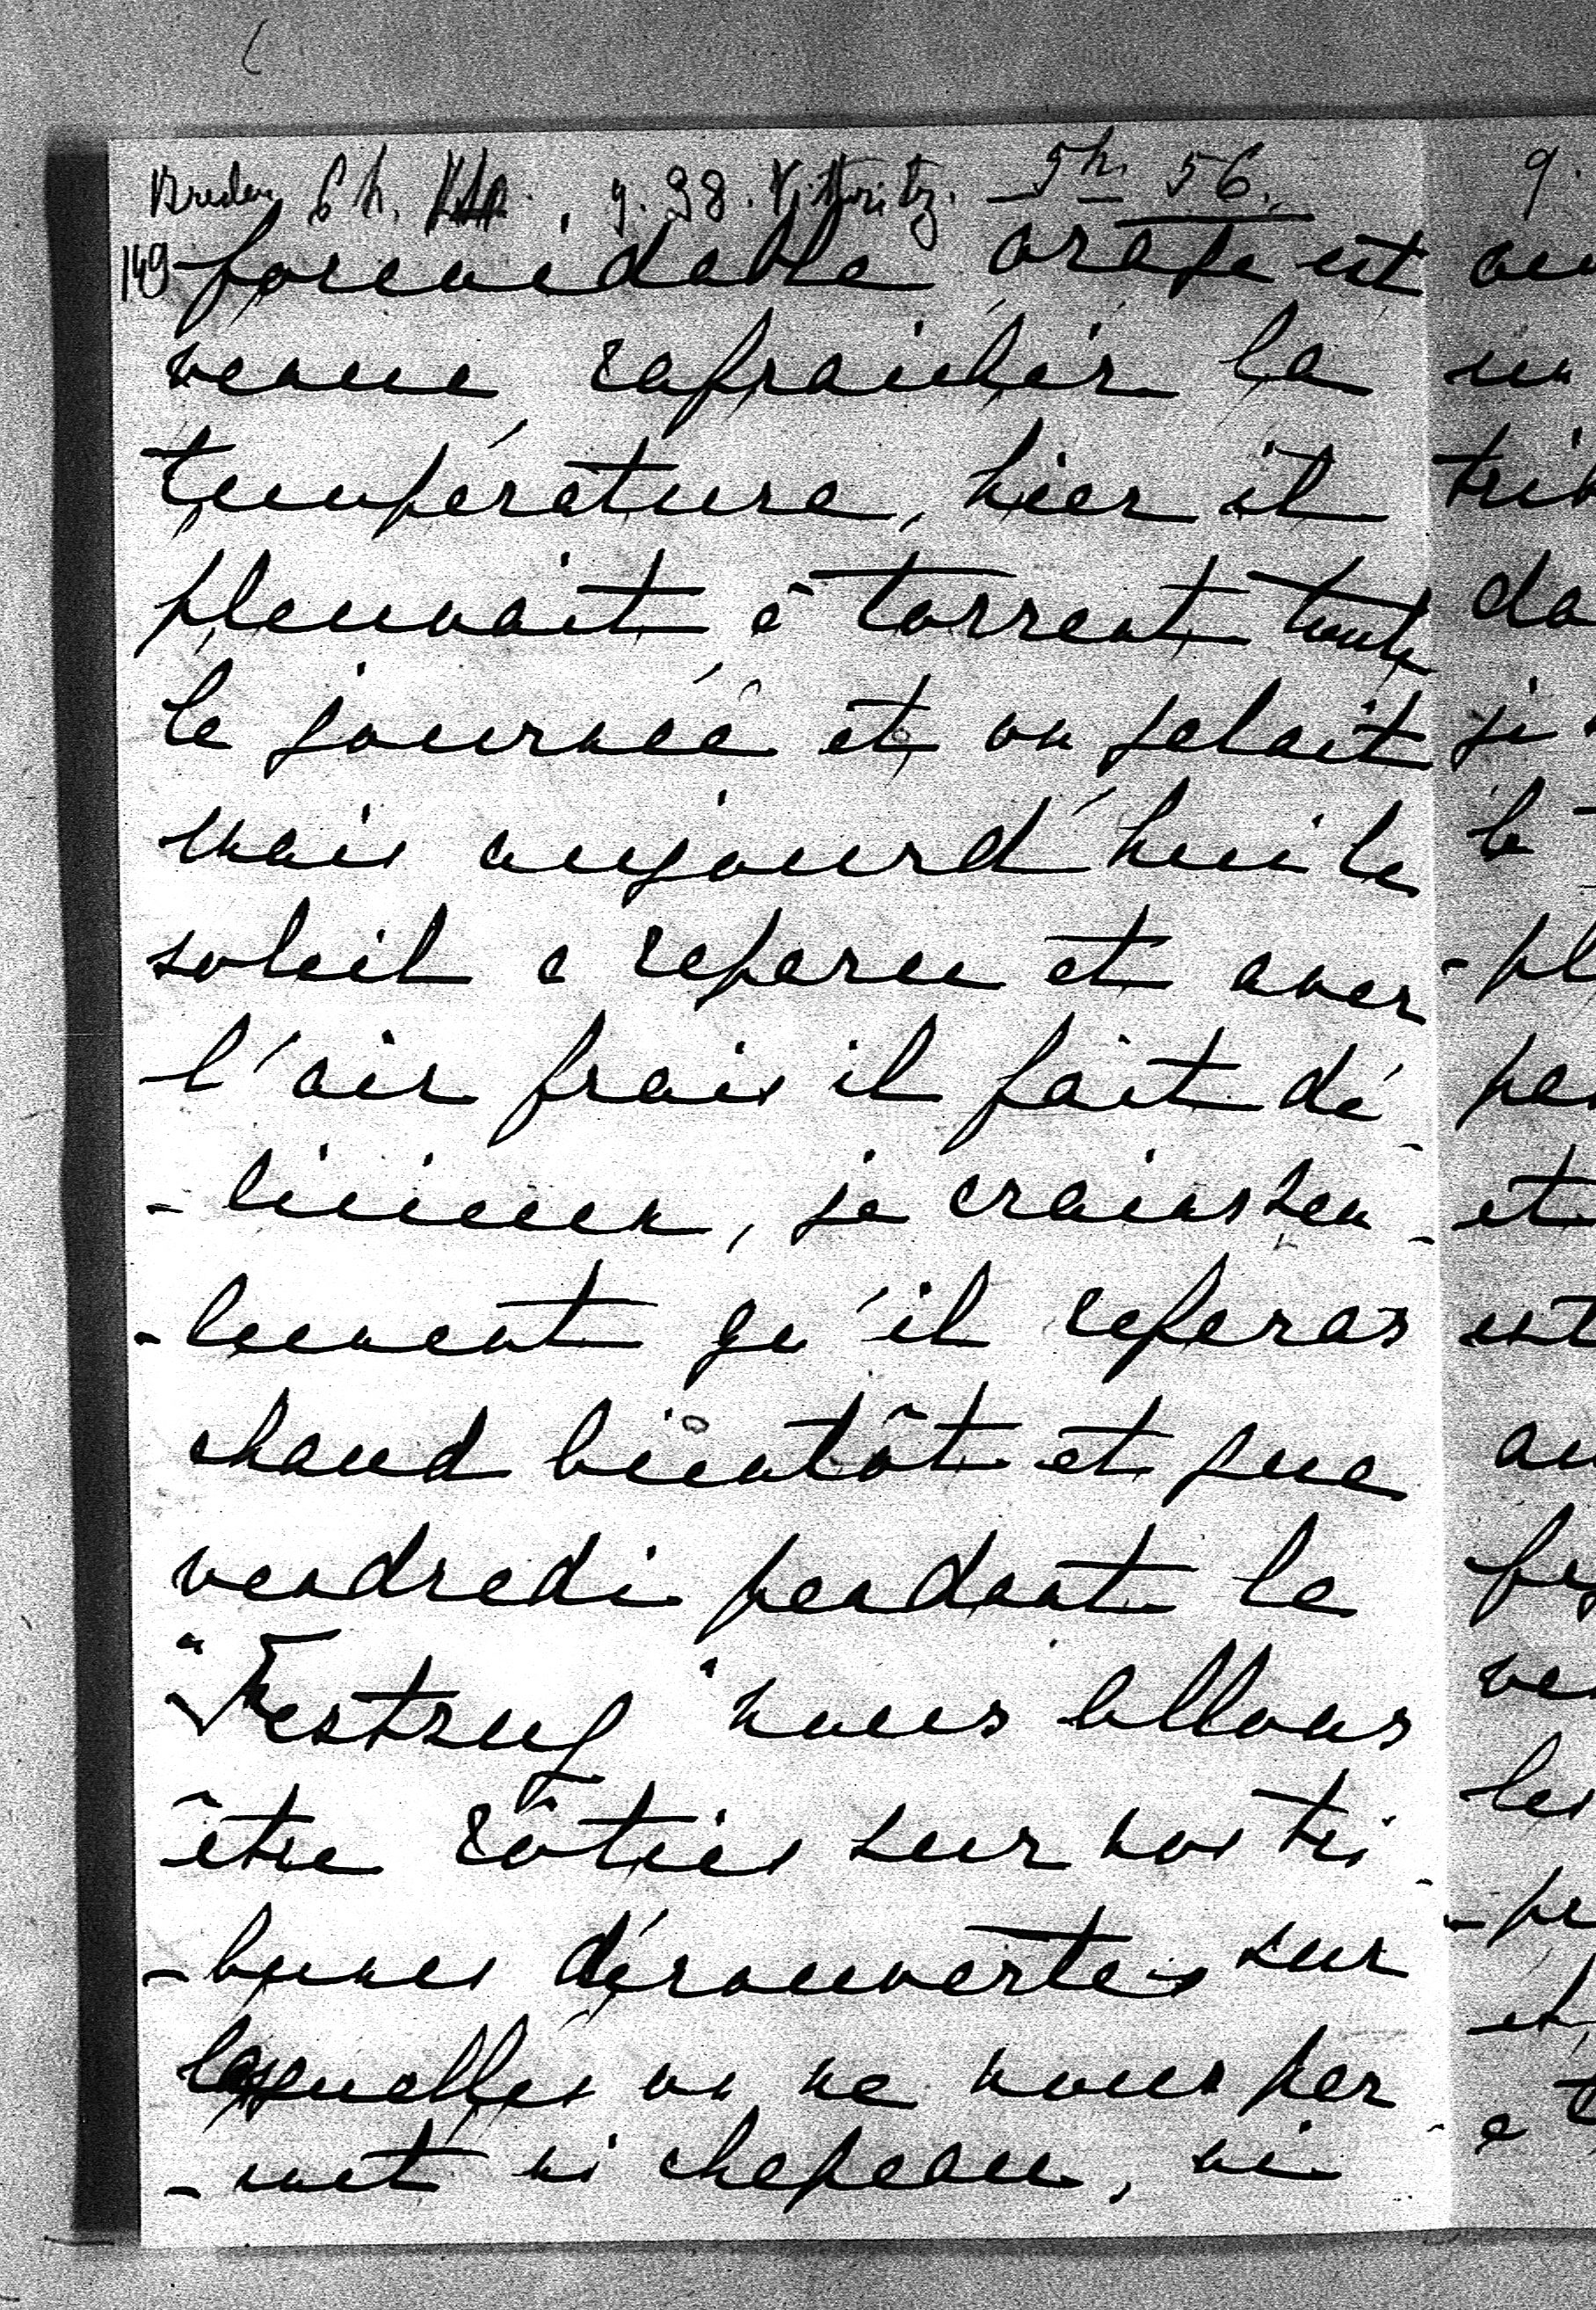 6 h. 5h. 56.
149 formidable orage est
venue rafraichir la
température, hier il
pleuvait à torrent toute
la journée et on gelait
mais aujourd'hui le
soleil a reparu et avec
l'air frais il fait dé-
-licieux, je crains seu-
-lement qu'il referas
chaud bientôt et que
vendredi pendant le
"Festzug" nous allons
être rôties sur nos tri-
-bunes découvertes sur
lesquelles on ne nous per-
-met ni chapeau, ni